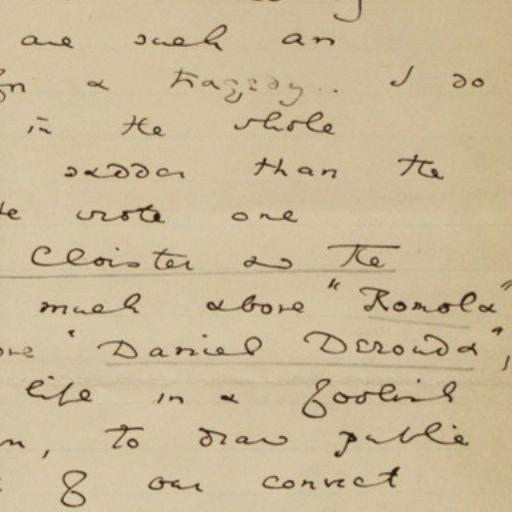 are such an
a tragedy.. I do
in the whole
sadder than the
wrote one
Cloister as the
much above "Romola"
"Daniel Deronda",
life in a foolish
to draw public
of our convict